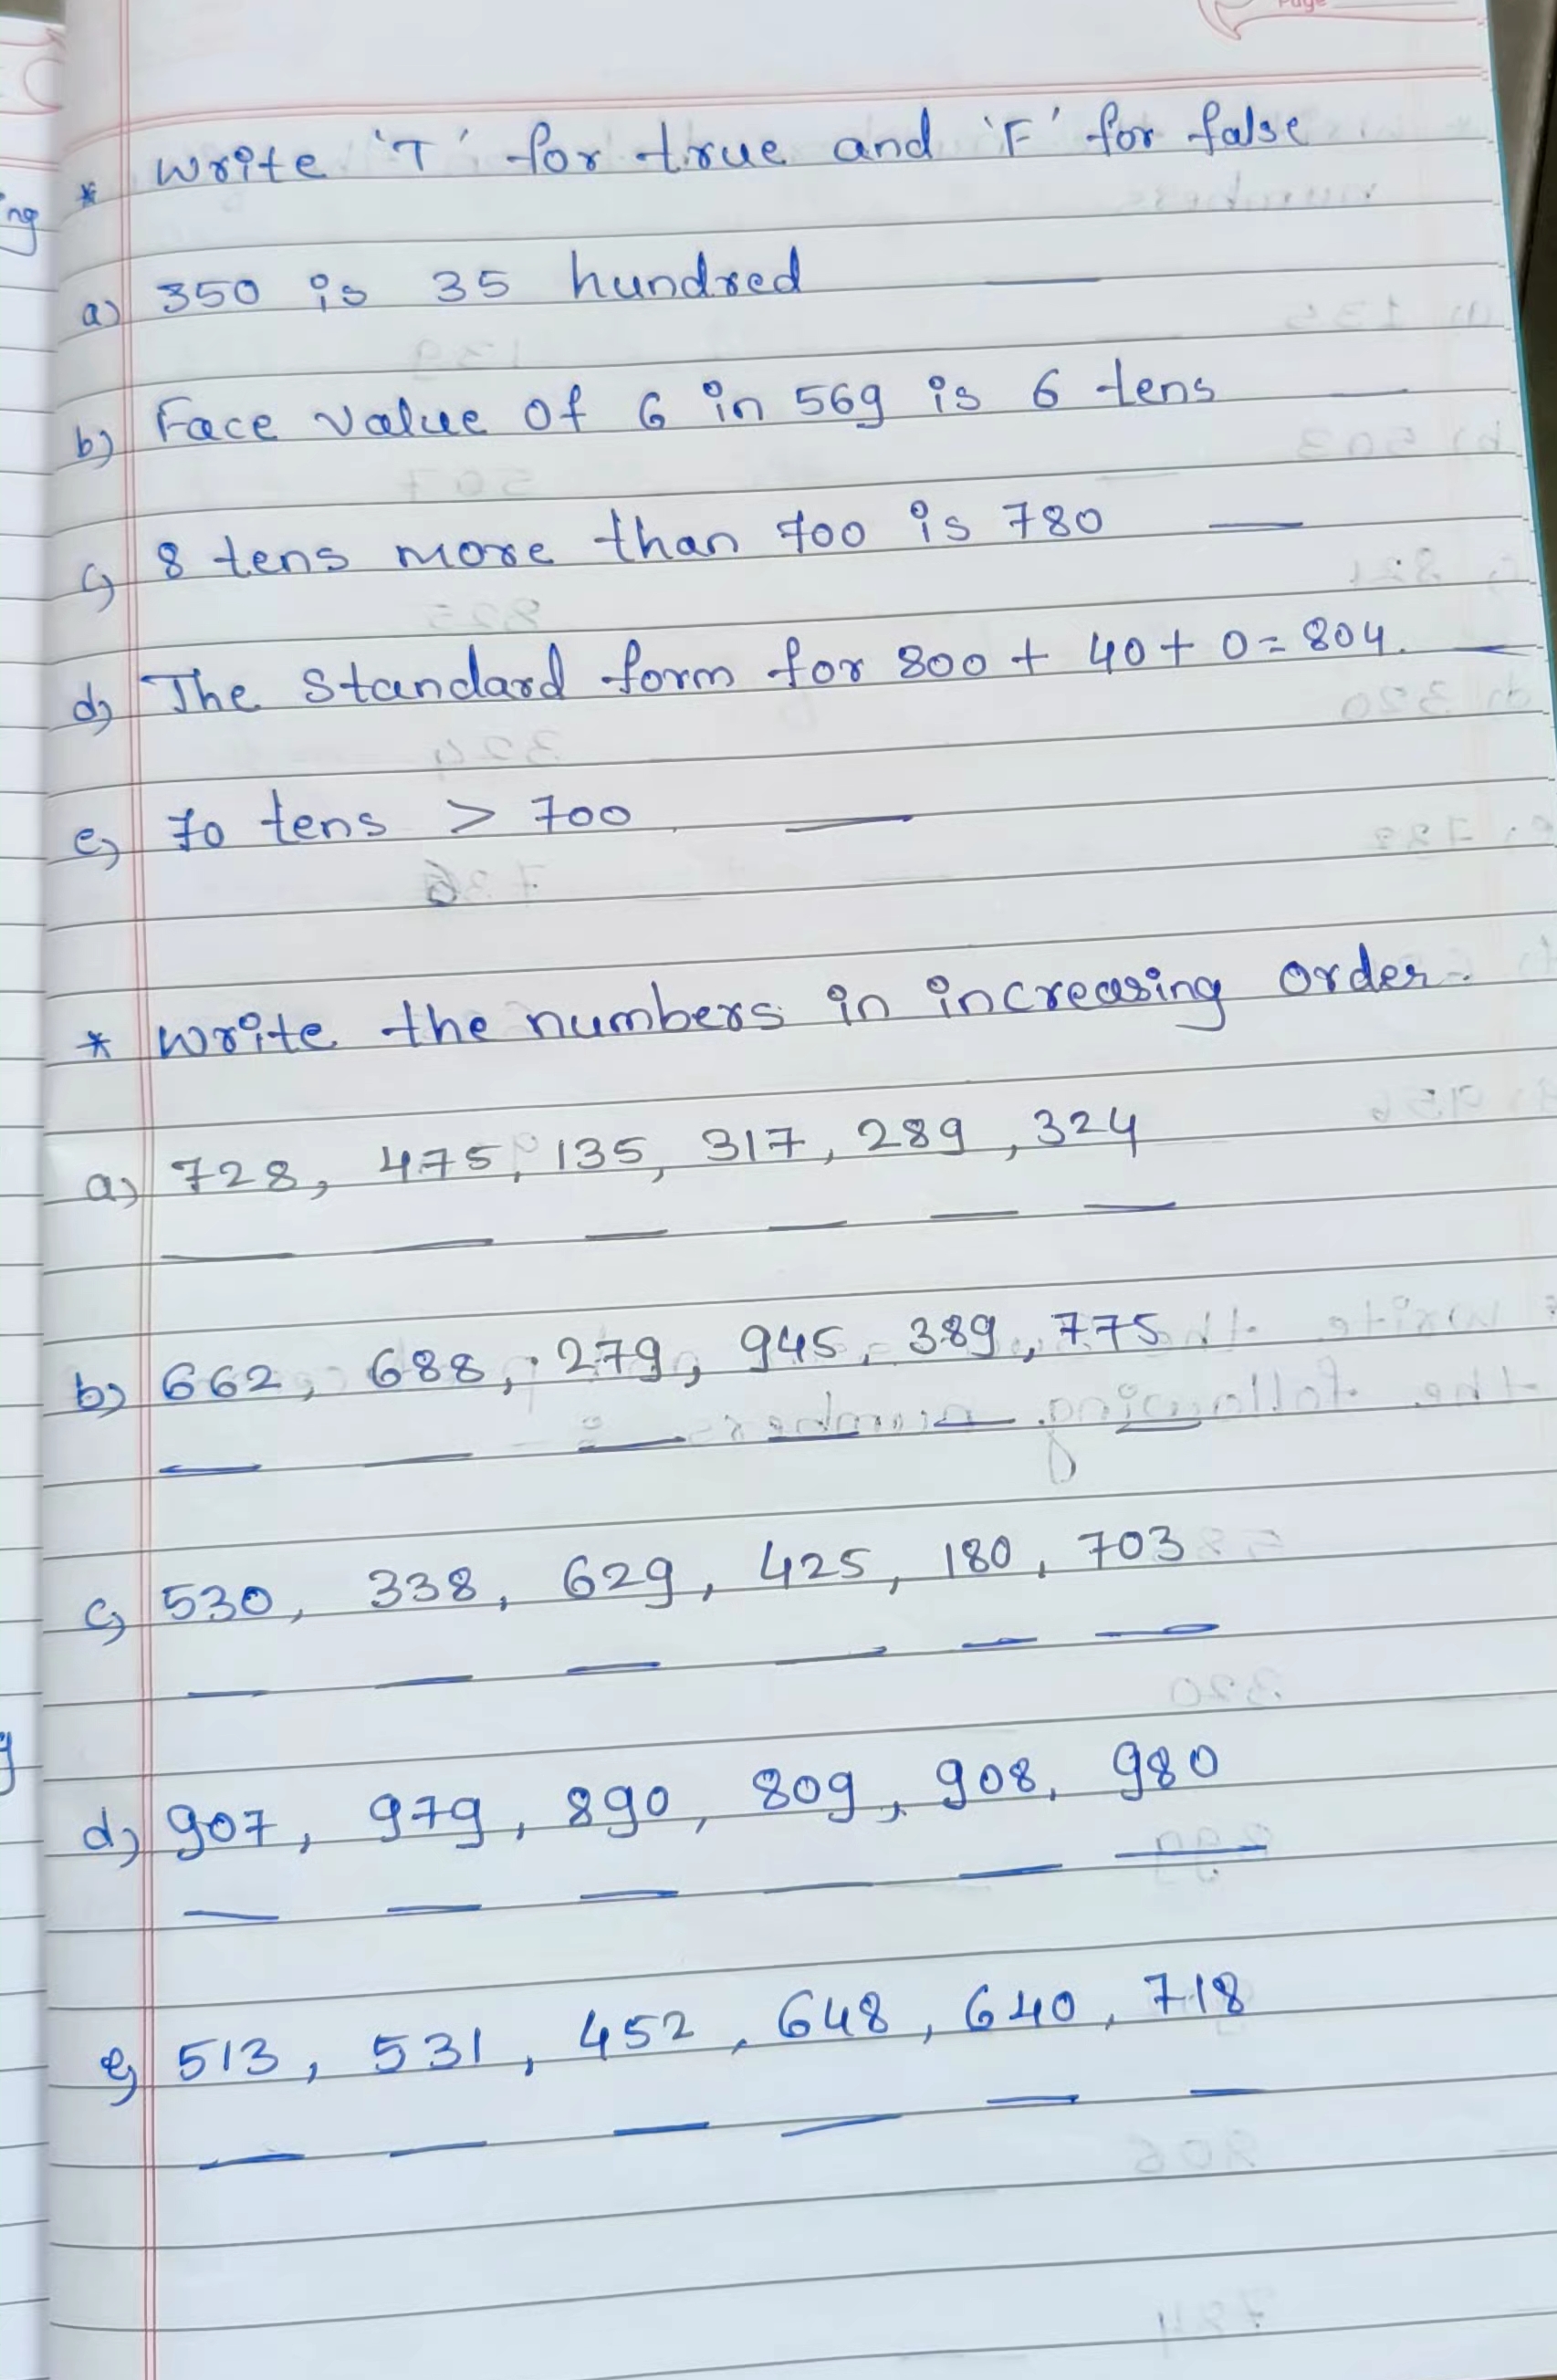 Page
* Write 'T' for true and 'F' for false
a) 350 is 35 hundred
b) Face value of 6 in 569 is 6 tens
c) 8 tens more than 700 is 780
d) The Standard form for 800 + 40 + 0 = 804.
e) 70 tens > 700
* Write the numbers in increasing order.
a) 728, 475, 135, 317, 289, 324
b) 662, 688, 279, 945, 389, 775
c) 530, 338, 629, 425, 180, 703
d) 907, 979, 890, 809, 908, 980
e) 513, 531, 452, 648, 640, 718